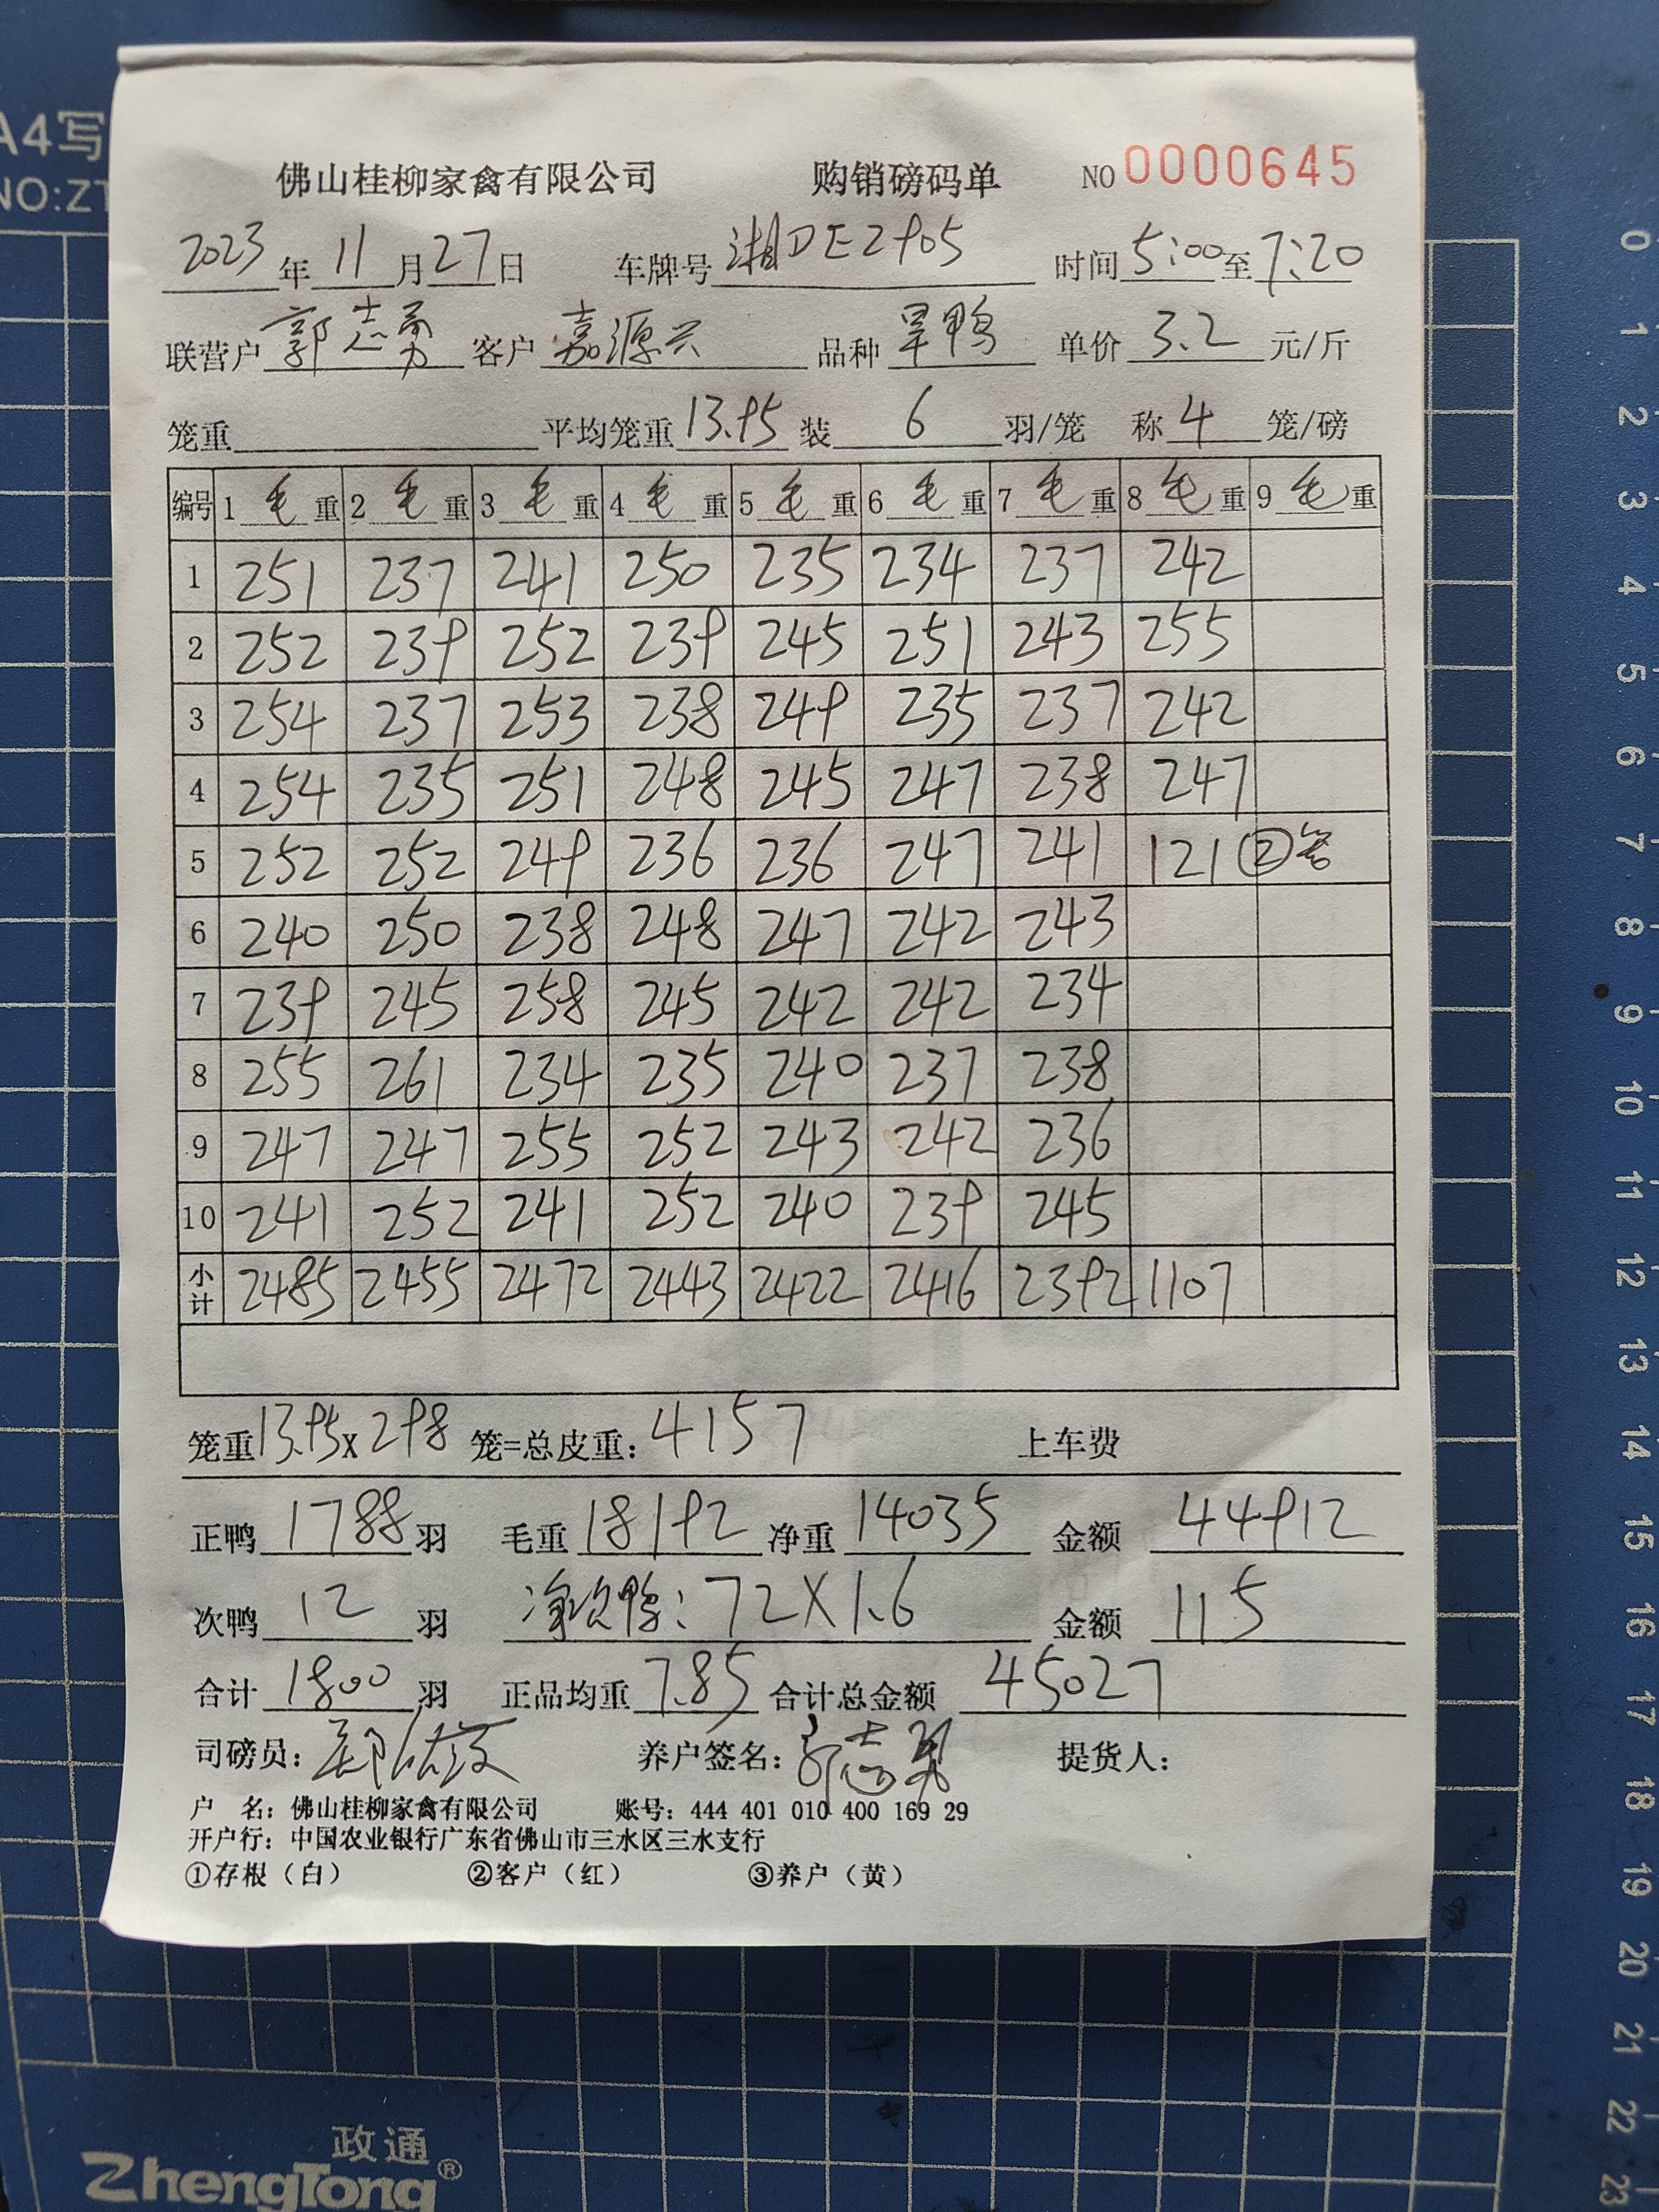 A4写
NO:ZT
佛山桂柳家禽有限公司 购销磅码单 NO 0000645
2023年11月27日 车牌号 湘DE2905 时间 5:00至7:20
联营户 郭志勇 客户 嘉源兴 品种 旱鸭 单价 3.2 元/斤
笼重 平均笼重 13.95 装 6 羽/笼 称 4 笼/磅
编号 1 毛 重 2 毛 重 3 毛 重 4 毛 重 5 毛 重 6 毛 重 7 毛 重 8 毛 重 9 毛 重
1 251 237 241 250 235 234 237 242
2 252 239 252 239 245 251 243 255
3 254 237 253 238 249 235 237 242
4 254 235 251 248 245 247 238 247
5 252 252 249 236 236 247 241 121 ②
6 240 250 238 248 247 242 243
7 239 245 258 245 242 242 234
8 255 261 234 235 240 237 238
9 247 247 255 252 243 242 236
10 241 252 241 252 240 239 245
小计 2485 2455 2472 2443 2422 2416 2392 1107
笼重 13.95 x 298 笼=总皮重: 4157 上车费
正鸭 1788 羽 毛重 18192 净重 14035 金额 44912
次鸭 12 羽 净次鸭: 72X1.6 金额 115
合计 1800 羽 正品均重 7.85 合计总金额 45027
司磅员: 养户签名: 郭志勇 提货人:
户 名: 佛山桂柳家禽有限公司 账号: 444 401 010 400 169 29
开户行: 中国农业银行广东省佛山市三水区三水支行
①存根（白） ②客户（红） ③养户（黄）
0 1 2 3 4 5 6 7 8 9 10 11 12 13 14 15 16 17 18 19 20 21 22 23
政通
ZhengTong®